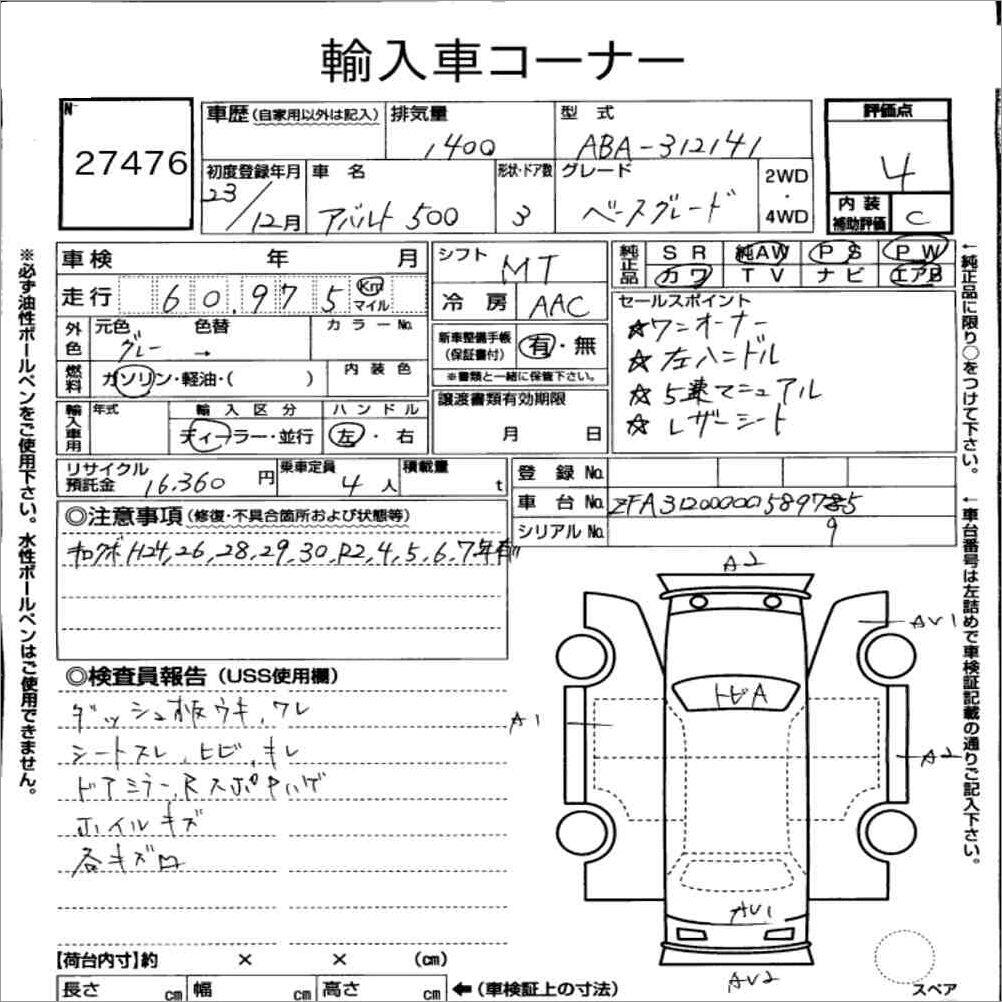 輸入車コーナー
No.
27476
車歴 (自家用以外は記入) 排気量 型式 評価点
1400 ABA-312141 4
初度登録年月 車名 形状・ドア数 グレード 2WD・4WD 内装補助評価
23/12月 アバルト500 3 ベースグレード C
車検 年 月 シフト MT 純正品 SR 純AW PS PW
走行 60,975 Km マイル 冷房 AAC カワ TV ナビ エアB
外色 元色 色替 カラーNo.
グレー →
新車整備手帳(保証書付) 有・無
※書類と一緒に保管下さい。
燃料 ガソリン・軽油・( ) 内装色
セールスポイント
☆ワンオーナー
☆左ハンドル
☆5速マニュアル
☆レザーシート
輸入車用 年式 輸入区分 ハンドル 譲渡書類有効期限
ディーラー・並行 左・右 月 日
リサイクル預託金 16.360円 乗車定員 4人 積載量 t
登録No.
車台No. ZFA31200000589785
9
シリアルNo.
◎注意事項 (修復・不具合箇所および状態等)
キロクボH24,26,28,29,30,R2,4,5,6,7年有
◎検査員報告 (USS使用欄)
ダッシュ板ウキ、ワレ
シートスレ、ヒビ、キレ
ドアミラー、Rスポハゲ
ホイルキズ
各キズ
A2
AV1
トビA
A1
A2
AV1
AV2
スペア
【荷台内寸】約 × × (cm)
長さ cm 幅 cm 高さ cm ←(車検証上の寸法)
※必ず油性ボールペンをご使用下さい。水性ボールペンはご使用できません。
←純正品に限り○をつけて下さい。
←車台番号は左詰めで車検証記載の通りご記入下さい。